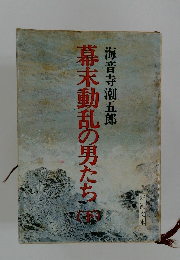 海音寺潮五郎
幕末動乱の男たち